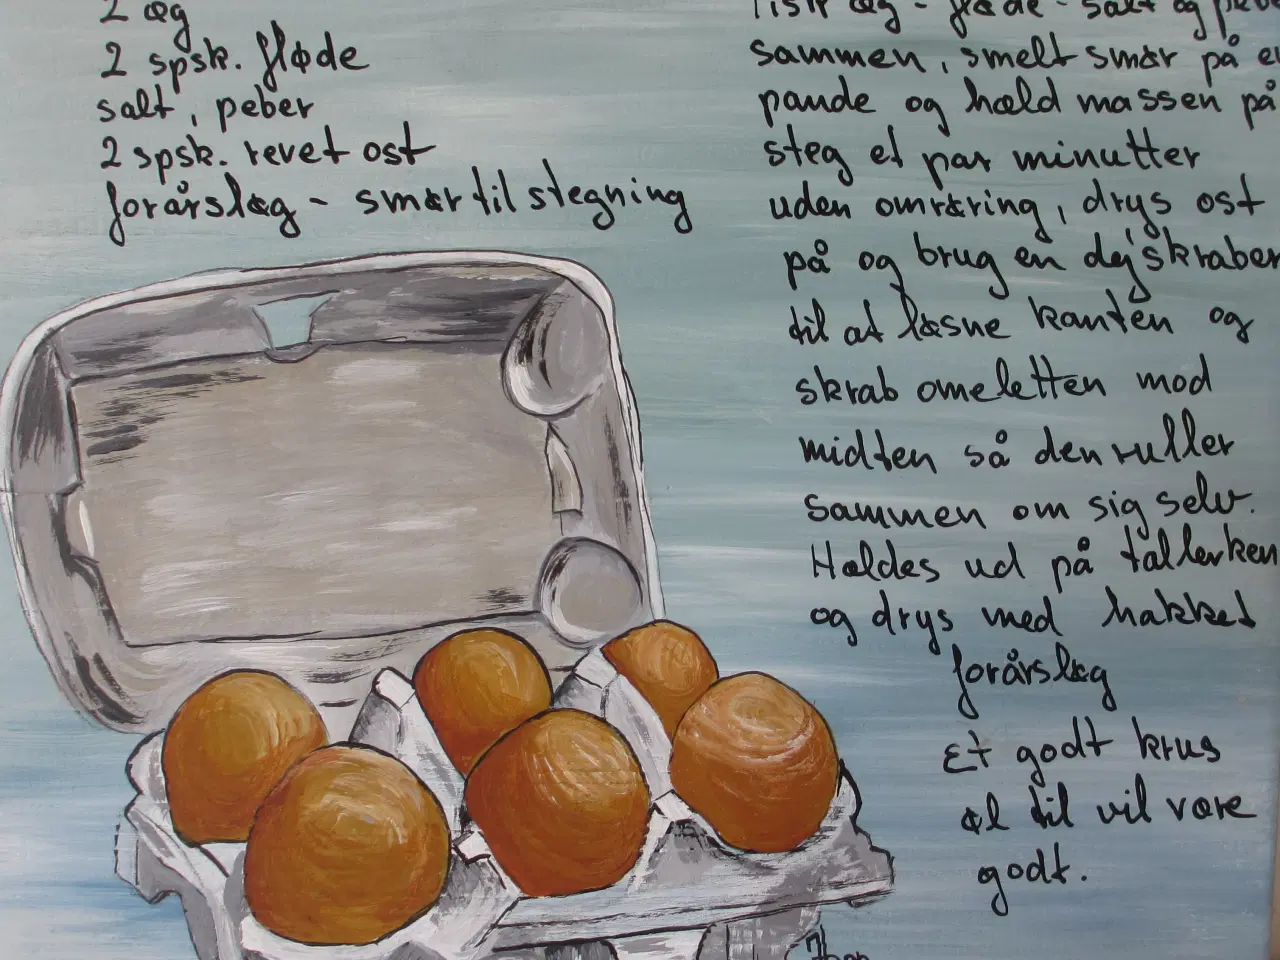 2 æg
2 spsk. fløde
salt, peber
2 spsk. revet ost
forårsløg - smør til stegning
Pisk æg - fløde - salt og peber
sammen, smelt smør på en
pande og hæld massen på
steg et par minutter
uden omrøring, drys ost
på og brug en dejskraber
til at løsne kanten og
skrab omeletten mod
midten så den ruller
sammen om sig selv.
Hældes ud på tallerken
og drys med hakket
forårsløg
Et godt krus
øl til vil være
godt.